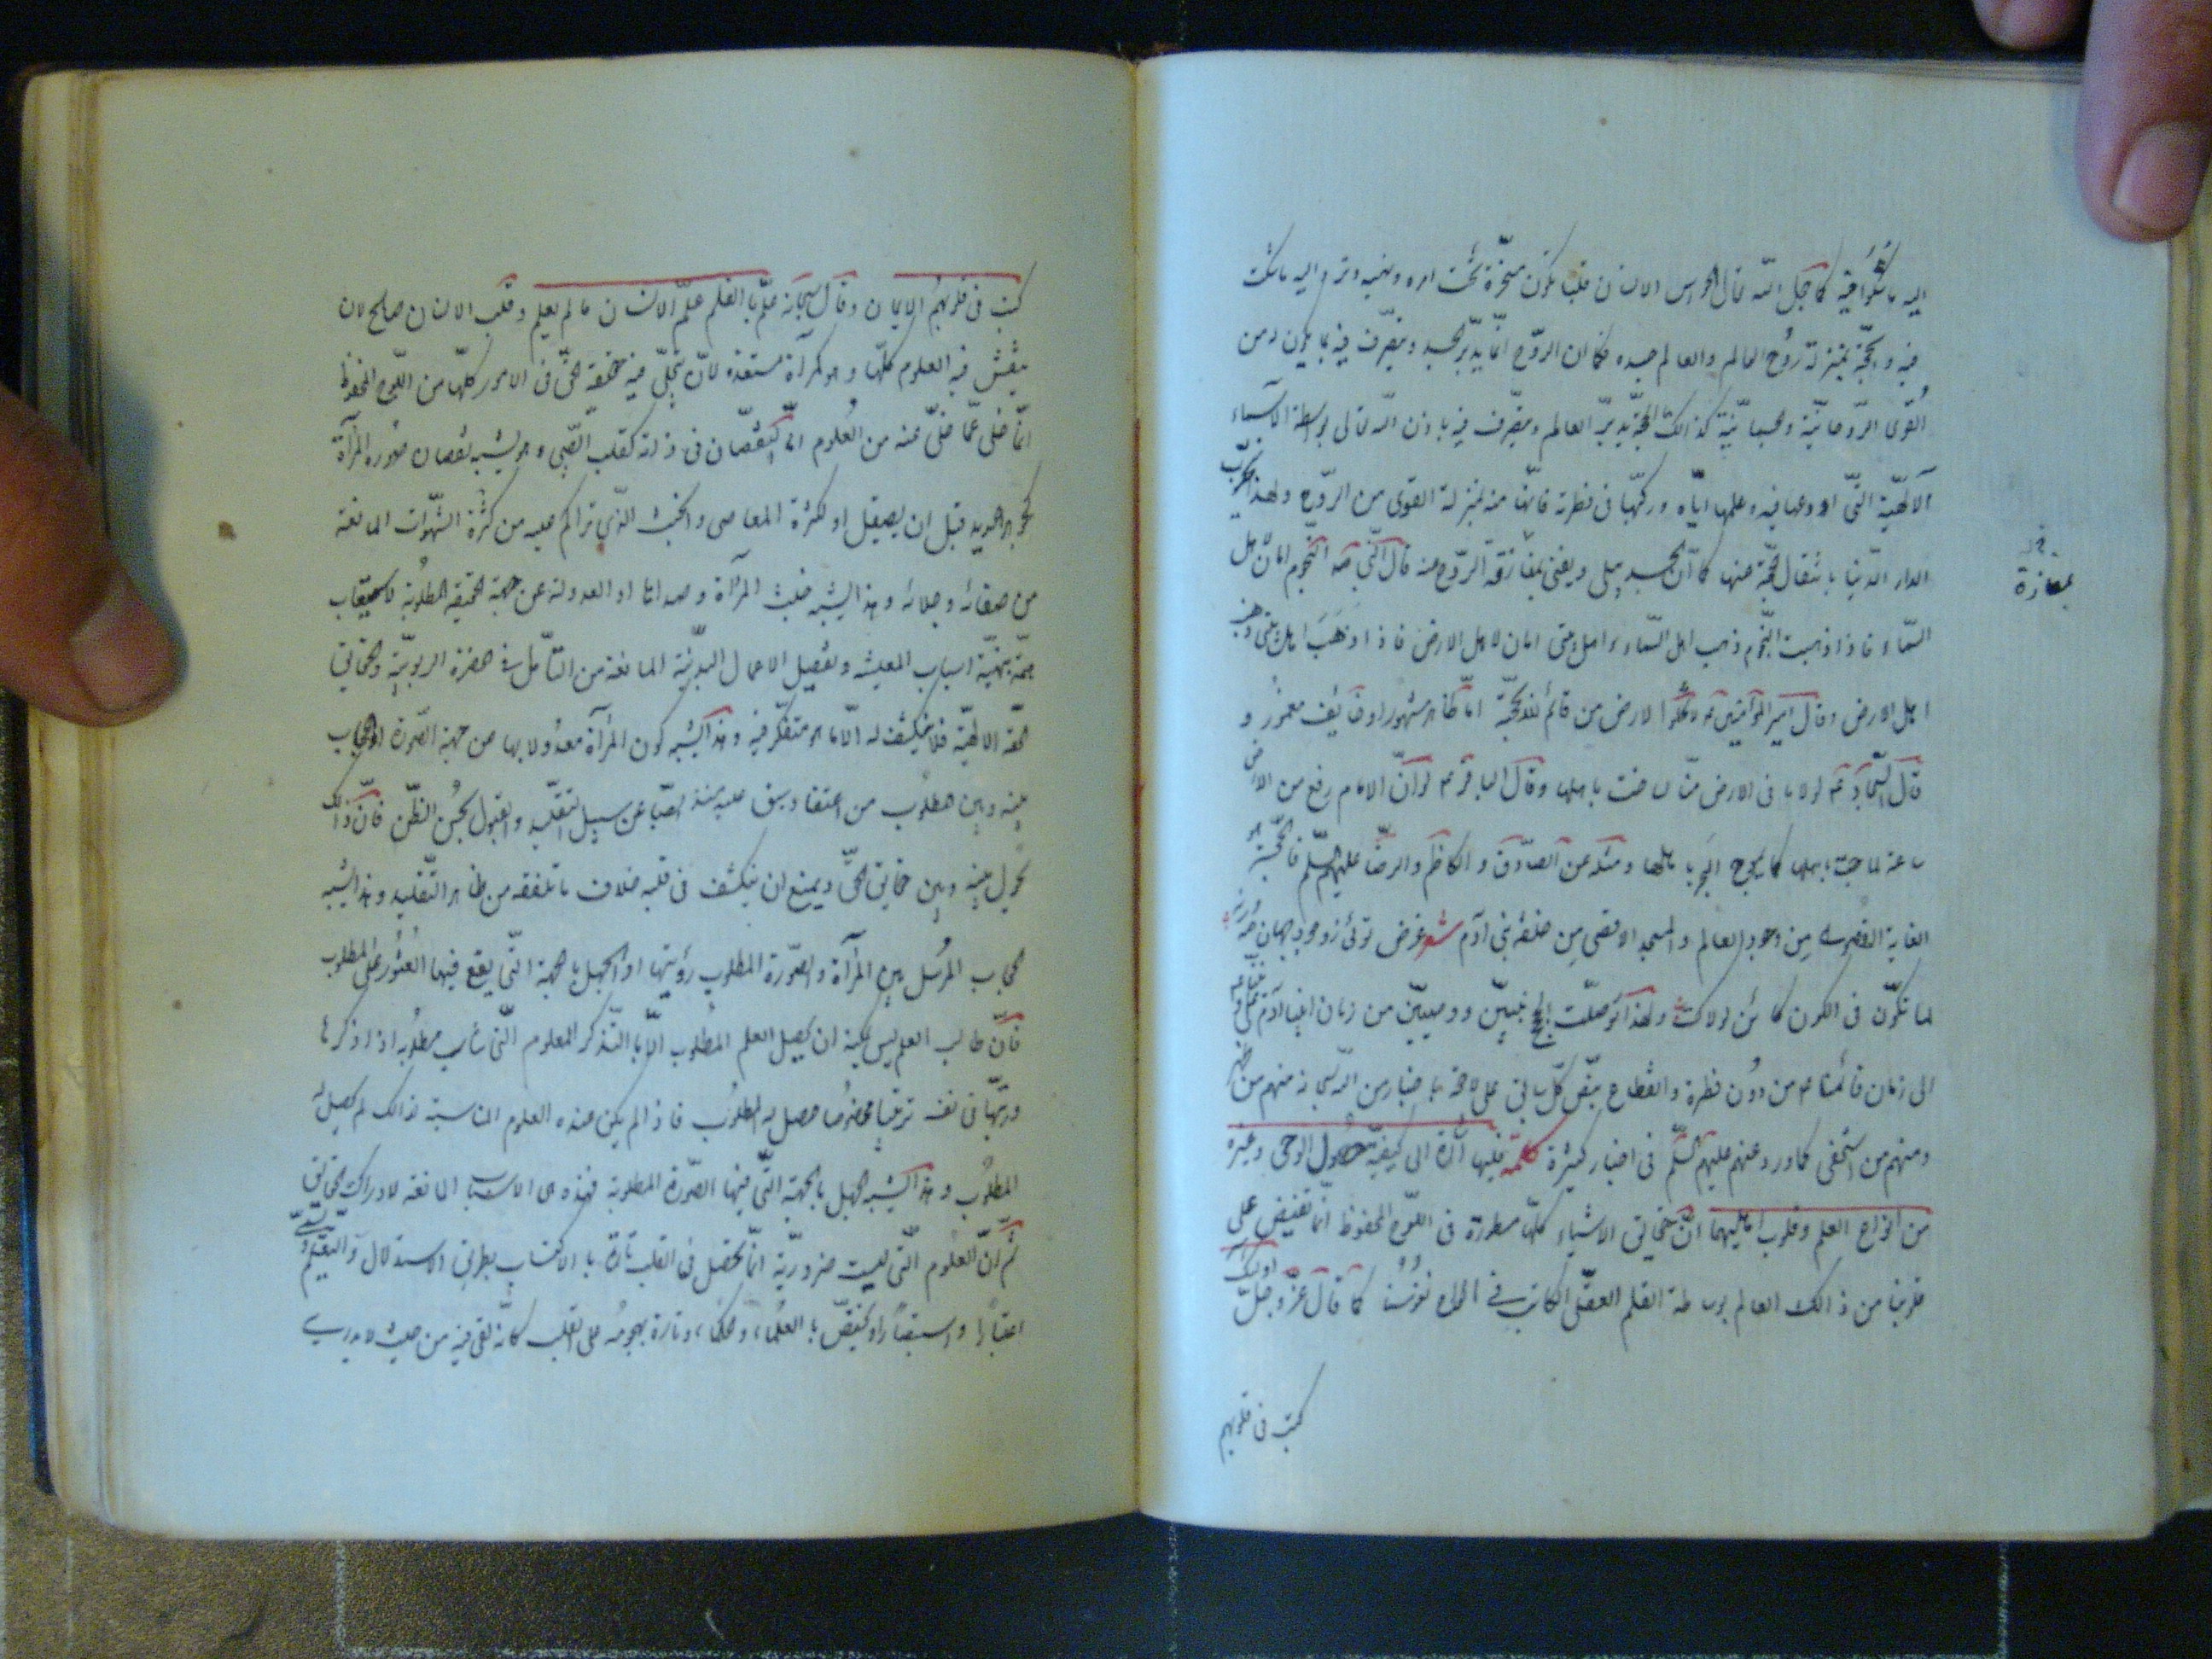 اليه ما شكوا فيه كما جعل الله تعالى لحواس الانسان قلبا تكون مسخّرة تحت امره ونهيه وترد اليه ما شكت
فيه والحجّة بمنزلة رُوح العالم والعالم جسده فكما ان الرّوح انّما يدبّر الجسد ويتصرّف فيه بما يكون له من
القوى الرّوحانيّة والجسمانيّة كذالك الحجّة يدبّر العالم ويتصرّف فيه باذن الله تعالى بواسطة الاسماء
الالٓهيّة الّتى اودعها فيه وعلّمها ايّاه وركبّها فى فطرته فانّها منه بمنزلة القوى من الرّوح ولهذا يخرب
الدار الدّنيا بانتقال الحجّة عنها كما انّ الجسد يبلى ويفنى بمفارقة الرّوح عنه قال النّبى صه النّجوم امان لاهل
السّماء فاذا ذهبت النّجوم ذهب اهل السّماء واهل بيتى امان لاهل الارض فاذا ذهب اهل بيتى ذهب
اهل الارض وقال امير المؤمنين عم لا تخلوا الارض من قائم لله بحجّة امّا ظاهر مشهور او خائف مغمور و
قال السّجّاد عم لولا ما فى الارض منّا لساخت باهلها وقال الباقر عم لو انّ الامام رفع من الارض
ساعة لماجت باهلها كما يموج البحر باهله ومثله عن الصّادق والكاظم والرضا عليهم السّلم فالحجّة هو
الغاية القصوى من وجود العالم والمسجد الاقصى من خلقة بنى آدم شعر غرض توئى ز وجود جهان ورنه
لما تكوّن فى الكون كائن لولاك ولهذا توصلت الحجج نبيين ووصيين من زمان ابينا آدم على نبينا وعم
الى زمان قائمنا عم من دون فطرة وانقطاع بنصّ كل سابق على لاحقه باختيار من الله سبحانه منهم من ظهر
ومنهم من استخفى كما ورد عنهم عليهم السّلم فى اخبار كثيرة كلمة فيها اشارة الى كيفيّة حصول الوحى وغيره
من انواع العلم وقلوب اهاليهما انّ حقايق الاشياء كلّها مسطورة فى اللّوح المحفوظ انّما تفيض على
قلوبنا من ذالك العالم بوساطة القلم العقلى الكاتب فى الواح نفوسنا كما قال عزّ وجلّ اولئك
كتب فى قلوبهم
كتب فى قلوبهم الايمان وقال سبحانه علّم بالقلم علّم الانسان مالم يعلم وقلب الانسان صالح لان
ينقش فيه العلوم كلّها وهو كمرآة مستعدّة لان تجلّى فيه حقيقة الحقّ فى الامور كلّها من اللوح المحفوظ
انّما خلى عمّا خلى عنه من العلوم امّا لنقصان فى ذاته كقلب الصّبى وهو يشبه نقصان صورة المرآة
كجوهر الحديد قبل ان يصيقل او لكثرة المعاصى والخبث الذى تراكم عليه من كثرة الشّهوات المانعة
من صفائه وجلائه وهذا يشبه خبث المرآة وصدائها او لعدوله عن جهة الحقيقة المطلوبة لاستيعاب
همّه بتهيّئة اسباب المعيشة وتفصيل الاعمال البدنيّة المانعة من التأمّل فى حضرة الربوبيّة والحقايق
الحقّة الالهيّة فلا ينكشف له الّا ما هو متفكّر فيه وهذا يشبه كون المرآة معدولا بها عن جهة الصّورة او لحجاب
بينه وبين المطلوب من اعتقاد سبق عليه منذ الصّبا على سبيل التقليد والقبول بحسن الظنّ فانّ ذالك
يحول بينه وبين حقايق الحقّ ويمنع ان ينكشف فى قلبه خلاف ما تلقفه من ظاهر التّقليد وهذا يشبه
الحجاب المرسل بين المرآة والصّورة المطلوب رؤيتها او لجهل بالجهة الّتى يقع فيها العثور على المطلوب
فانّ طالب العلم ليس يمكنه ان يحصل العلم المطلوب الّا بالتّذكر للعلوم الّتى تناسب مطلوبه اذا ذكرها
ورتبّها فى نفسه ترتيبا مخصوصا حصل له المطلوب فاذا لم يكن عنده العلوم المناسبة لذالك لم يحصل له
المطلوب وهذا يشبه الجهل بالجهة الّتى فيها الصّورة المطلوبة فهذه هى الاسباب المانعة لادراك الحقايق
ثمّ انّ العلوم الّتى ليست ضروريّة انّما تحصل فى القلب تارة بالاكتساب بطريق الاستدلال والتعلّم ويسمّى
اعتبارا واستبصارا ويختصّ بالعلماء والحكماء وتارة بهجومه على القلب كانّه القى فيه من حيث لا يدرى